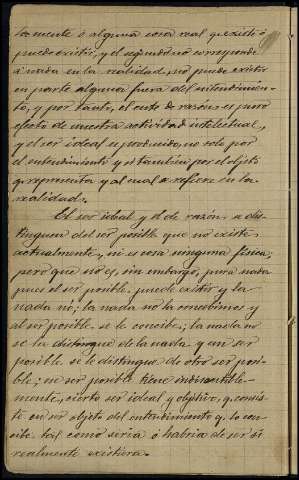 tamente á alguna cosa real q. existe ó
puede existir, y el segundo no corresponde
á nada en la realidad, no puede existir
en parte alguna fuera del entendimien-
to, y por tanto, el ente de razón es puro
efecto de nuestra actividad intelectual,
y el ser ideal es producido, no solo por
el entendimiento sino también por el objeto
q. representa y al cual se refiere en la
realidad.
El ser ideal y el de razón, se dis-
tinguen del ser posible que no existe
actualmente, ni es cosa ninguna física;
pero que no es, sin embargo, pura nada
pues el ser posible, puede existir y la
nada no; la nada no la concebimos y
al ser posible se le concibe; la nada no
se la distingue de la nada y un ser
posible se le distingue de otro ser posi-
ble; no ser posible tiene
mente, cierto ser ideal y objetivo, q. consis-
te en ser objeto del entendimiento q. lo con-
cibe tal como sería ó habría de ser si
realmente existiera.